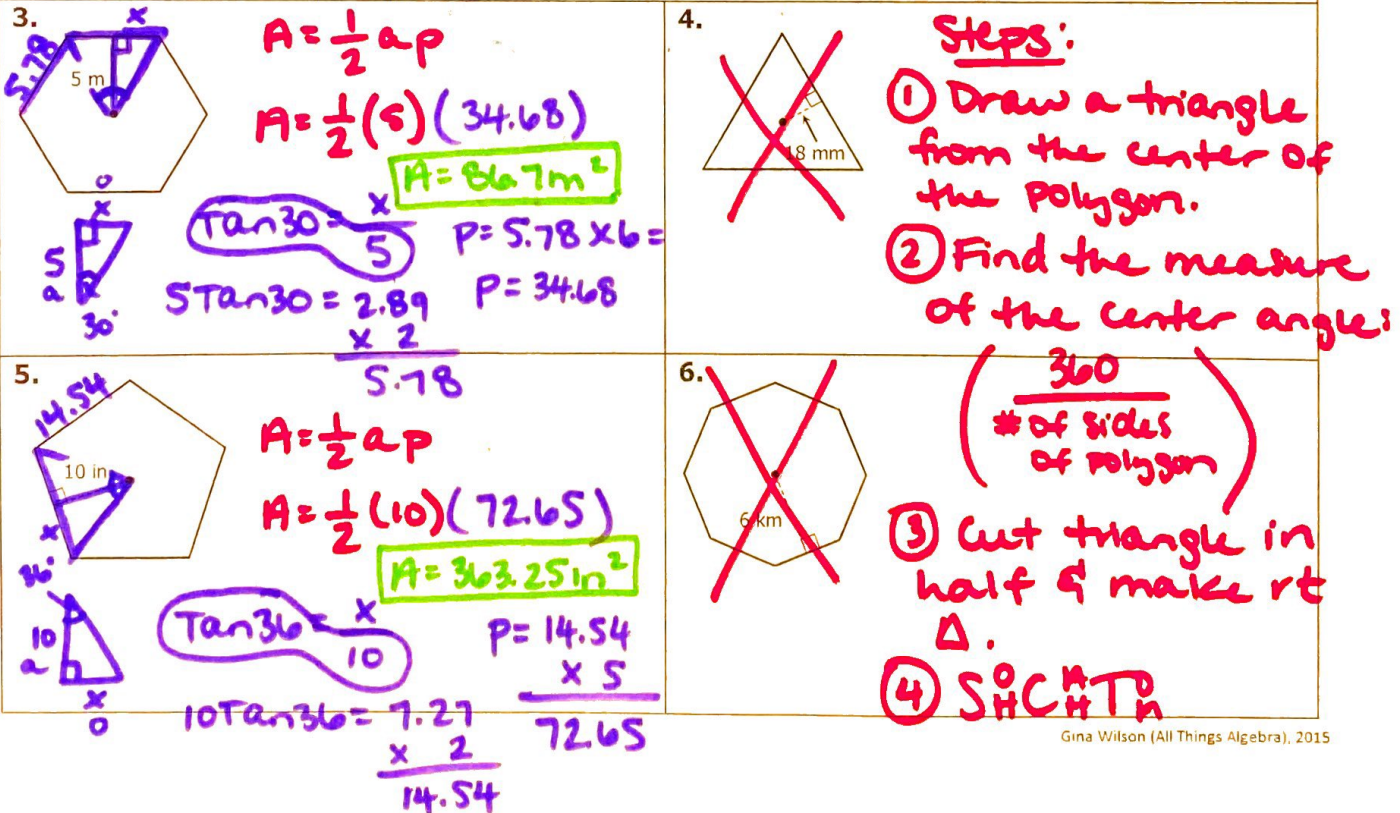 3.
x
5.78
5 m
A = 1/2 ap
A = 1/2 (5) (34.68)
A = 86.7m²
o
x
5
a
30°
Tan30 = x/5
5Tan30 = 2.89
x 2
5.78
P = 5.78 x 6 =
P = 34.68
4.
18 mm
Steps:
① Draw a triangle
from the center of
the polygon.
② Find the measure
of the center angle:
(360
# of sides
of polygon)
③ Cut triangle in
half & make rt
Δ.
④ S O/H C A/H T O/A
5.
14.54
10 in
x
A = 1/2 ap
A = 1/2 (10) (72.65)
A = 363.25in²
36°
10
a
x
o
Tan36 = x/10
10Tan36 = 7.27
x 2
14.54
P = 14.54
x 5
72.65
6.
6 km
Gina Wilson (All Things Algebra), 2015